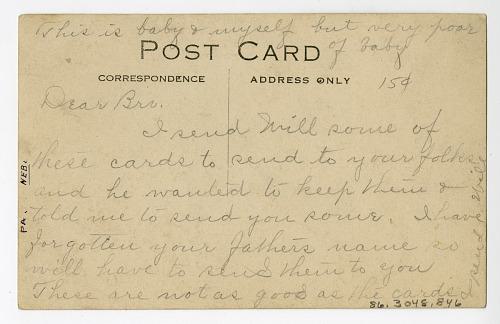 This is baby & myself but very poor
of baby
POST CARD
CORRESPONDENCE
ADDRESS ONLY
15¢
Dear Bro.
I send Will some of
these cards to send to your folks
and he wanted to keep them &
told me to send you some. I have
forgotten your fathers name so
will have to send them to you
These are not as good as the cards
I send Will
PA. NEB.
86.3048.846